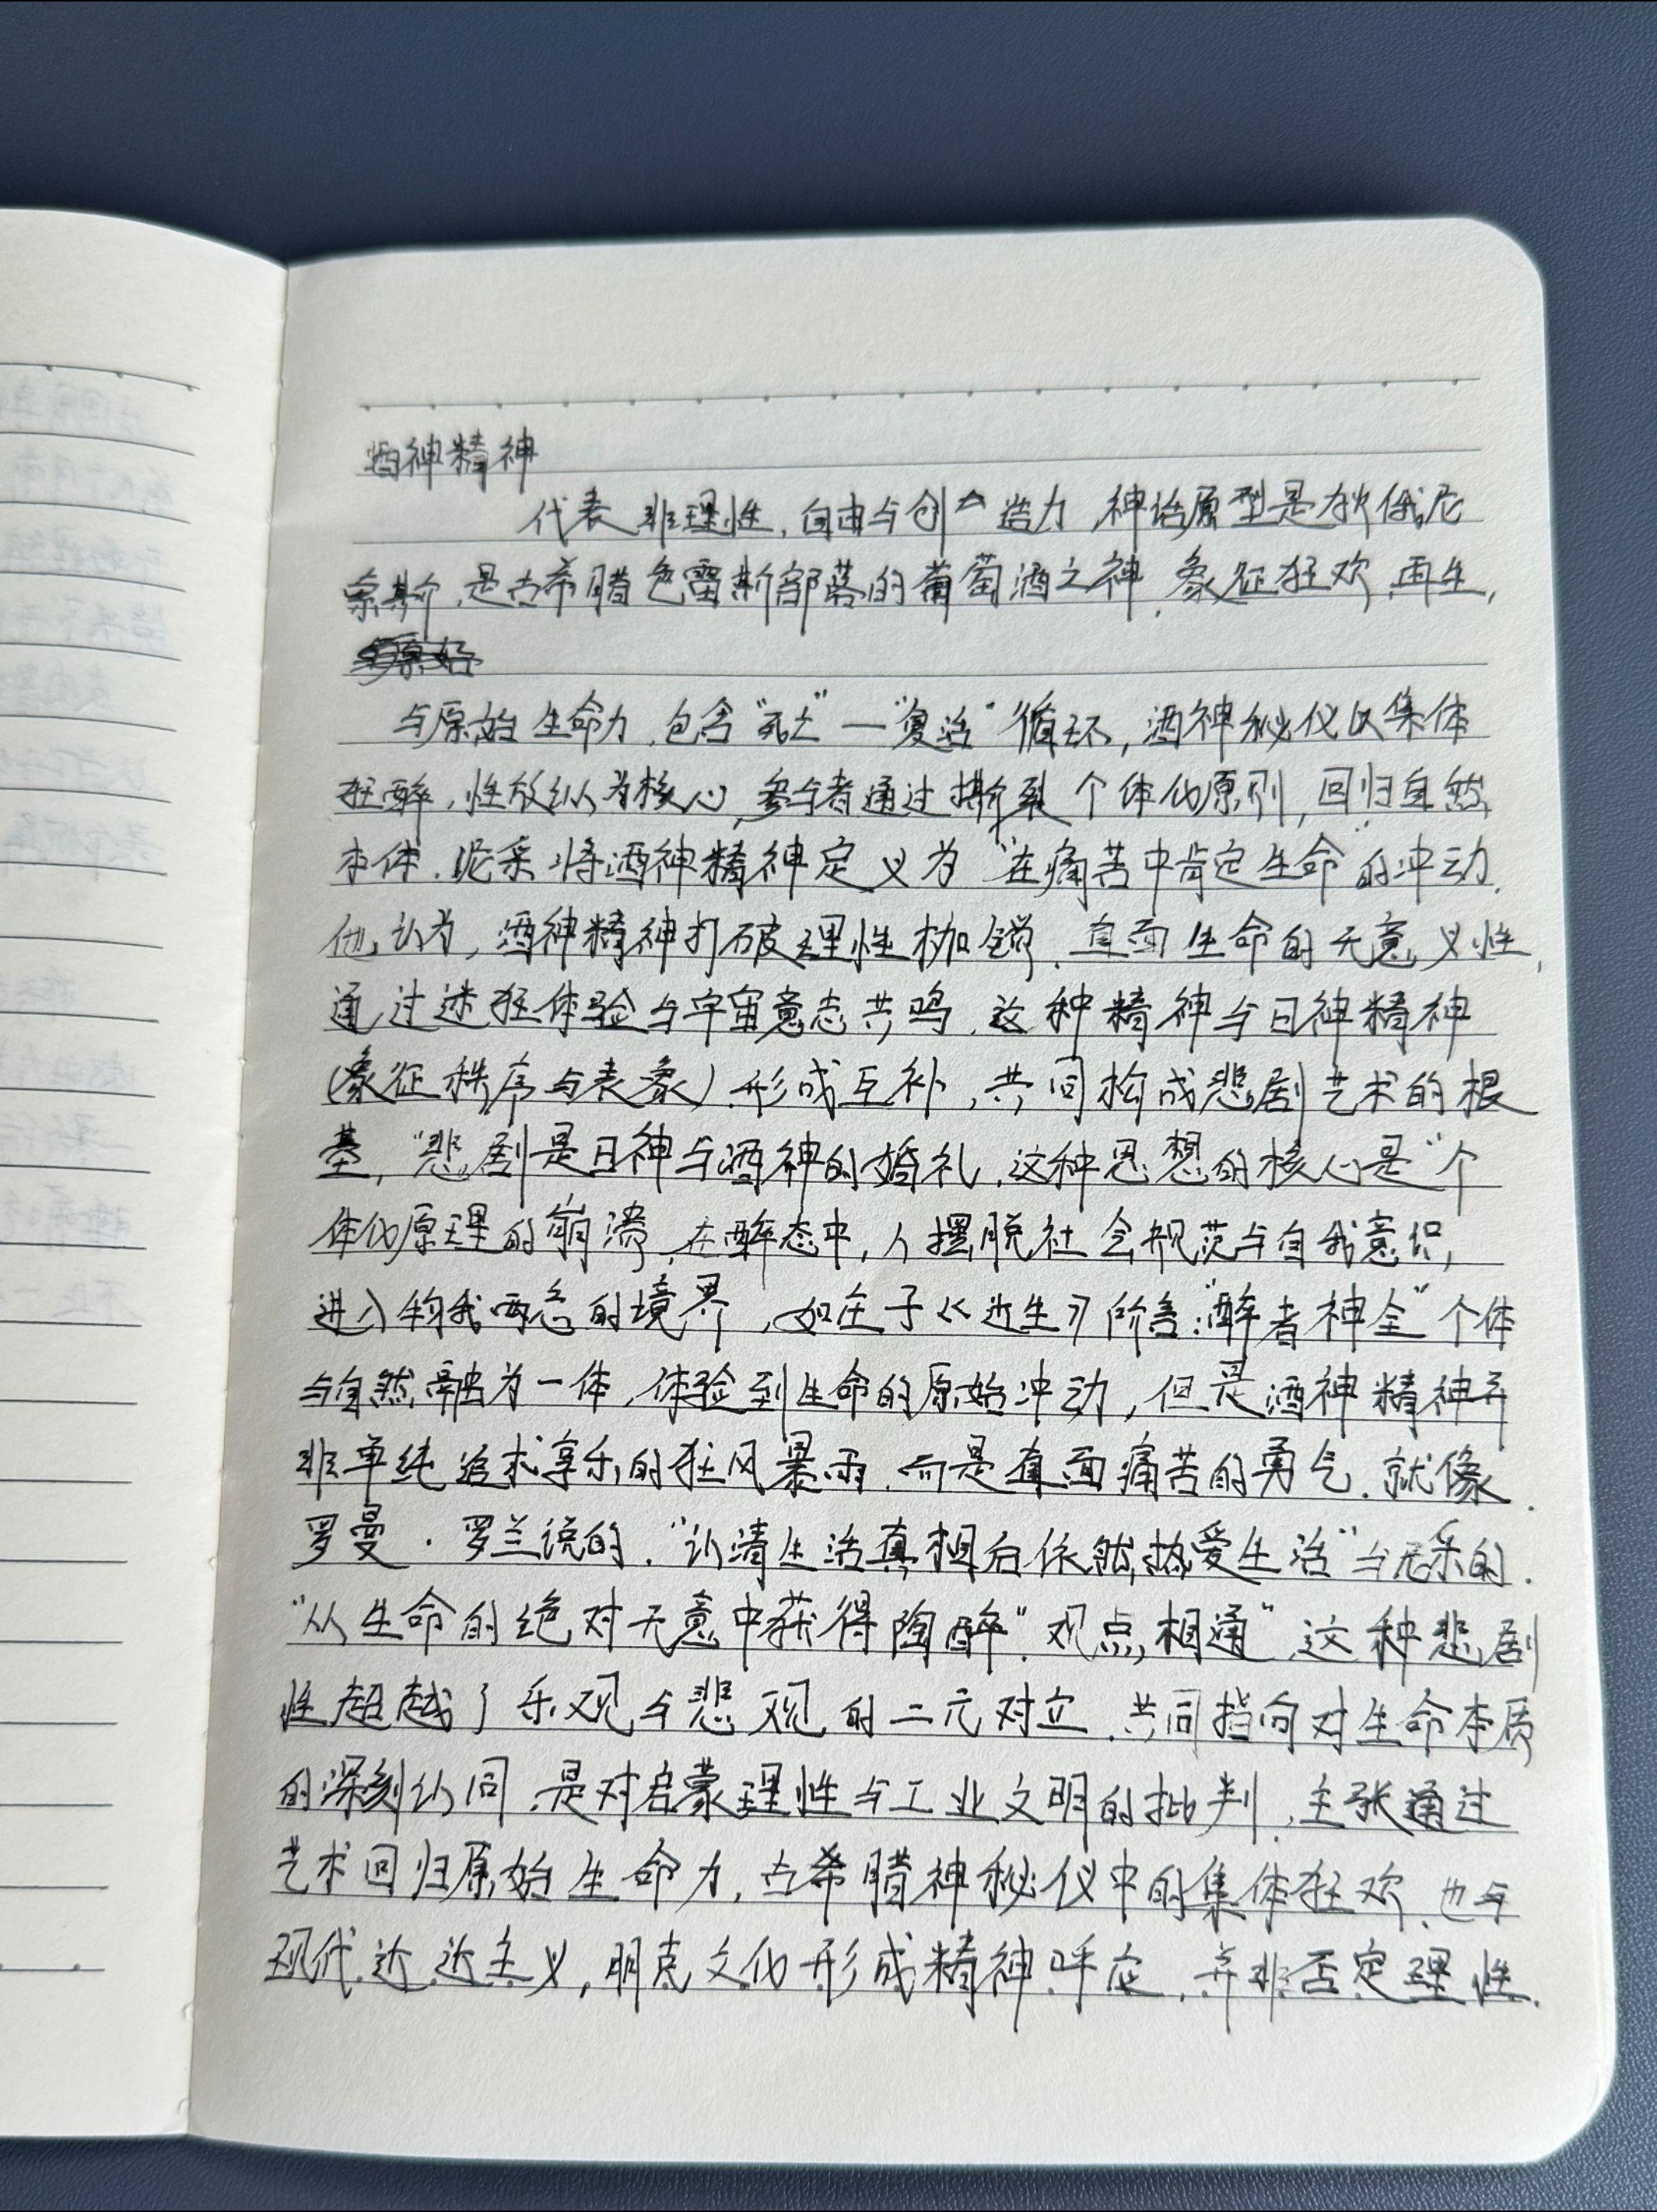 酒神精神
代表非理性，自由与创造力，神话原型是狄俄尼
索斯，是古希腊色雷斯部落的葡萄酒之神，象征狂欢，再生，
与原始生命力，包含“死亡”—“复活”循环，酒神秘仪以集体
狂醉，性放纵为核心，参与者通过撕裂个体化原则，回归自然
本体．尼采将酒神精神定义为“在痛苦中肯定生命”的冲动．
他认为，酒神精神打破理性枷锁，直面生命的无意义性，
通过迷狂体验与宇宙意志共鸣，这种精神与日神精神
（象征秩序与表象）形成互补，共同构成悲剧艺术的根
基，“悲剧是日神与酒神的婚礼，这种思想的核心是“个
体化原理的崩溃，在醉态中，人摆脱社会规范与自我意识，
进入物我两忘的境界，如庄子《达生》所言：“醉者神全”个体
与自然融为一体，体验到生命的原始冲动，但是酒神精神并
非单纯追求享乐的狂风暴雨，而是直面痛苦的勇气．就像．
罗曼·罗兰说的．“认清生活真相后依然热爱生活”与尼采的．
“从生命的绝对无意中获得陶醉”观点，相通”，这种悲剧
性超越了乐观与悲观的二元对立，共同指向对生命本质
的深刻认同，是对启蒙理性与工业文明的批判，主张通过
艺术回归原始生命力，古希腊神秘仪中的集体狂欢，也与
现代 主义，朋克文化形成精神呼应，并非否定理性．